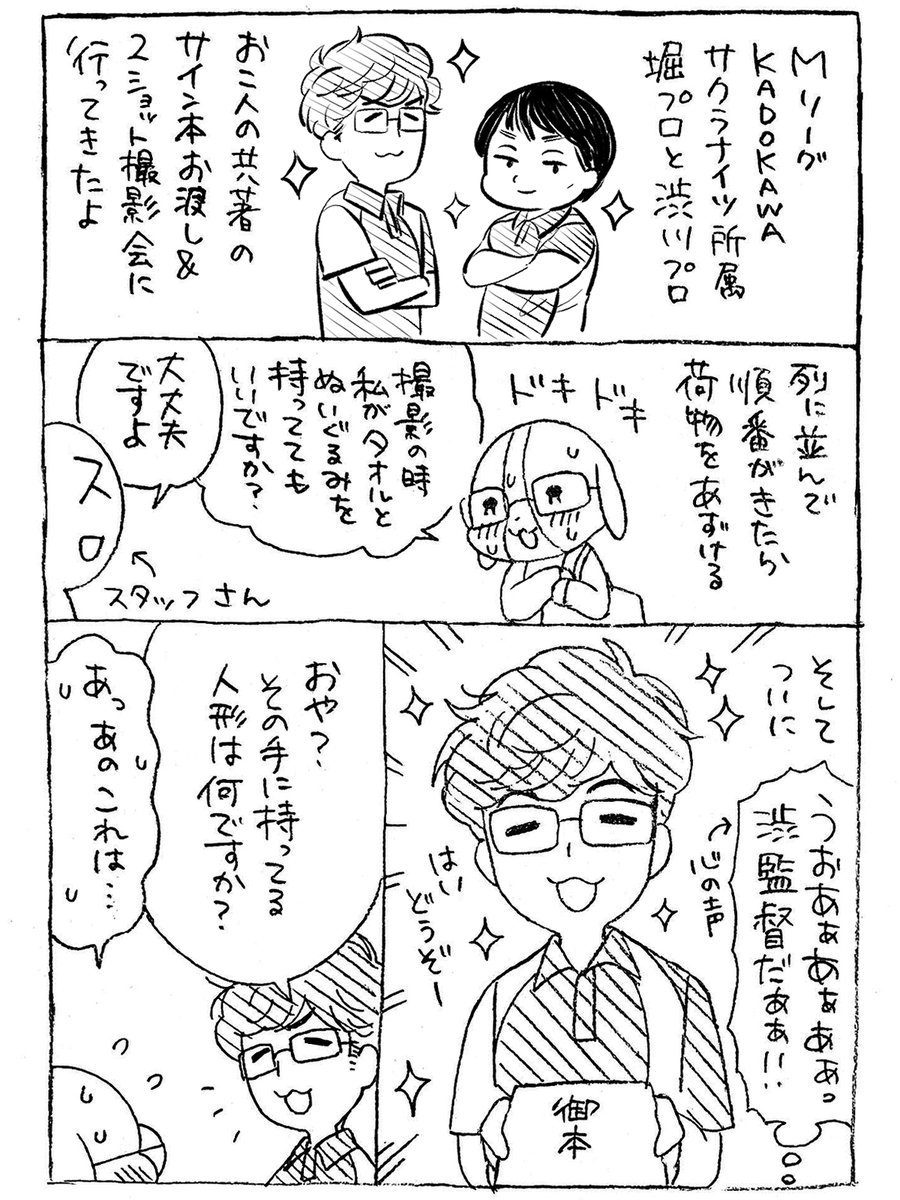 Mリーグ
KADOKAWA
サクラナイツ所属
堀プロと渋川プロ
お二人の共著の
サイン本お渡し&
2ショット撮影会に
行ってきたよ
列に並んで
順番がきたら
荷物をあずける
ドキドキ
撮影の時
私がタオルと
ぬいぐるみを
持ってても
いいですか?
大丈夫
ですよ
スロ
スタッフさん
そして
ついに
うおあぁあぁぁぁっ
渋監督だぁぁ!!
心の声
はい
どうぞー
御本
おや?
その手に持ってる
人形は何ですか?
あっあのこれは…